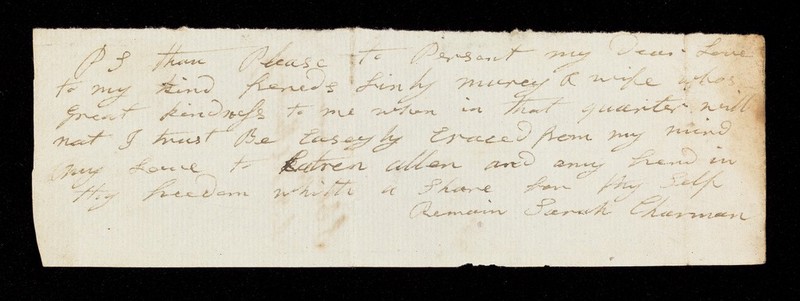 P S thou Please to Persent my Dear Love
to my kind freneds Linly murey & wife whos
great kindness to me when in that quarter will
not I trust Be Easeyly Eraced from my mind
my Love to allen and any frend in
thy freedom whith a Share for thy Self
Remain Sarah Charman